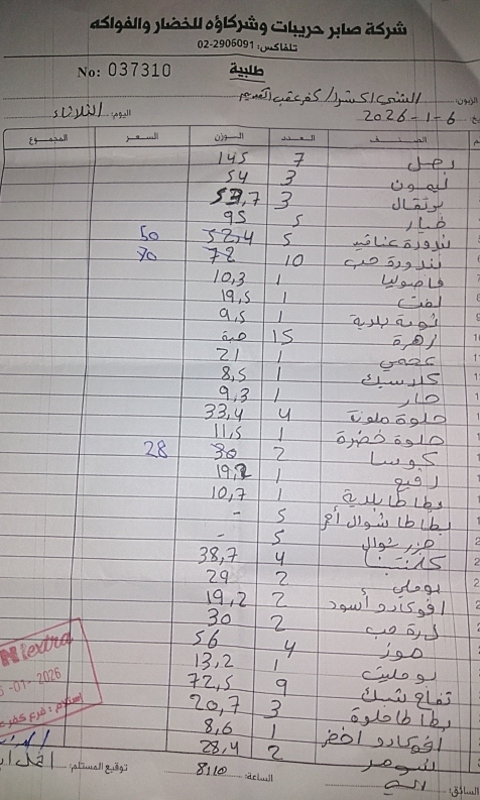 شركة صابر حريبات وشركاؤه للخضار والفواكه
تلفاكس: 02-2906091
طلبية
No: 037310
الزبون: الشني اكسترا / كفر عقب القديم
2026-1-6 اليوم: الثلاثاء
الصنف العدد الوزن السعر المجموع
بصل 7 145
ليمون 3 54
برتقال 3 53,7
خيار 5 95
بندورة عناقيد 5 52,4 50
بندورة حب 10 72 70
فاصوليا 1 10,3
لفت 1 19,5
ثومة بلدية 1 9,5
زهرة 15 حبة
عجمي 1 21
كلاسيك 1 8,5
حار 1 9,3
حلوة ملونة 4 33,4
حلوة خضرة 1 11,5
كوسا 2 30 28
رفيع 1 19,2
بطاطا بلدية 1 10,7
بطاطا شوال أحمر 5 -
جزر شوال 5 -
كلمنتينا 4 38,7
بوملي 2 29
افوكادو أسود 2 19,2
درة حب 2 30
موز 4 56
بوميلت 1 13,2
تفاح شلك 9 72,5
بطاطا حلوة 3 20,7
افوكادو اخضر 1 8,6
شومر 2 28,4
extra
-01-2026
استلام: فرع كفر
السائق: الساعة: 8:10 توقيع المستلم: